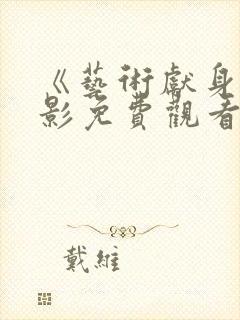 《藝術獻身
影免費觀看
戴維